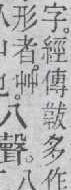 字。經傳多作
形者。艸。八聲。